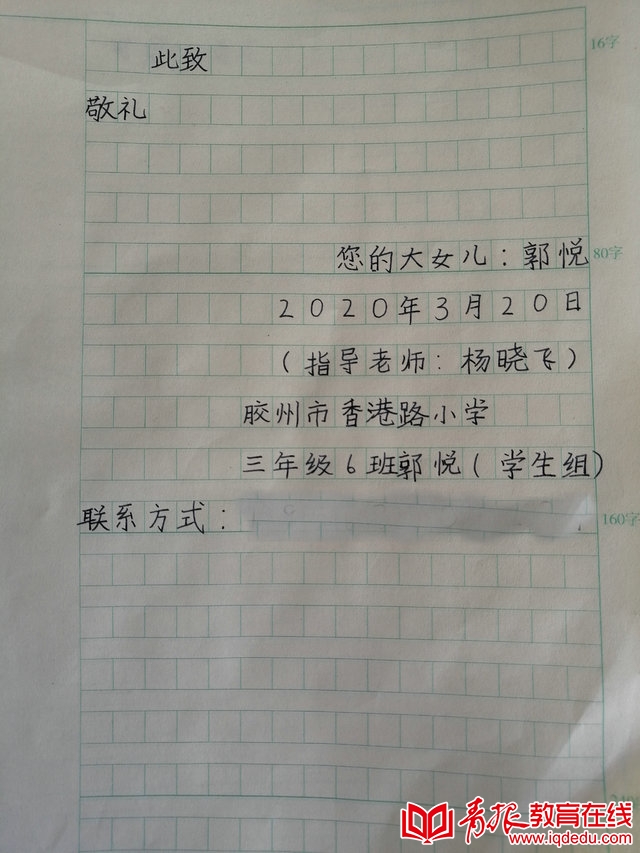 16字
此致
敬礼
您的大女儿：郭悦
80字
2020年3月20日
（指导老师：杨晓飞）
胶州市香港路小学
三年级6班郭悦（学生组）
联系方式：
160字
青报教育在线
www.iqdedu.com